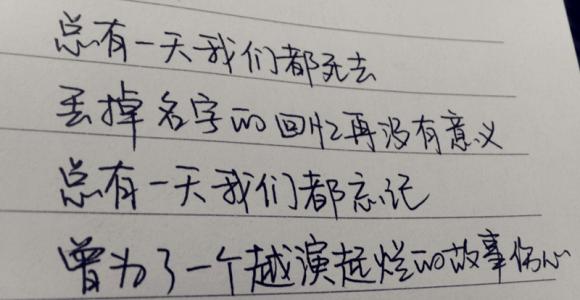 总有一天我们都死去
丢掉名字的回忆再没有意义
总有一天我们都忘记
曾为了一个越演越烂的故事伤心